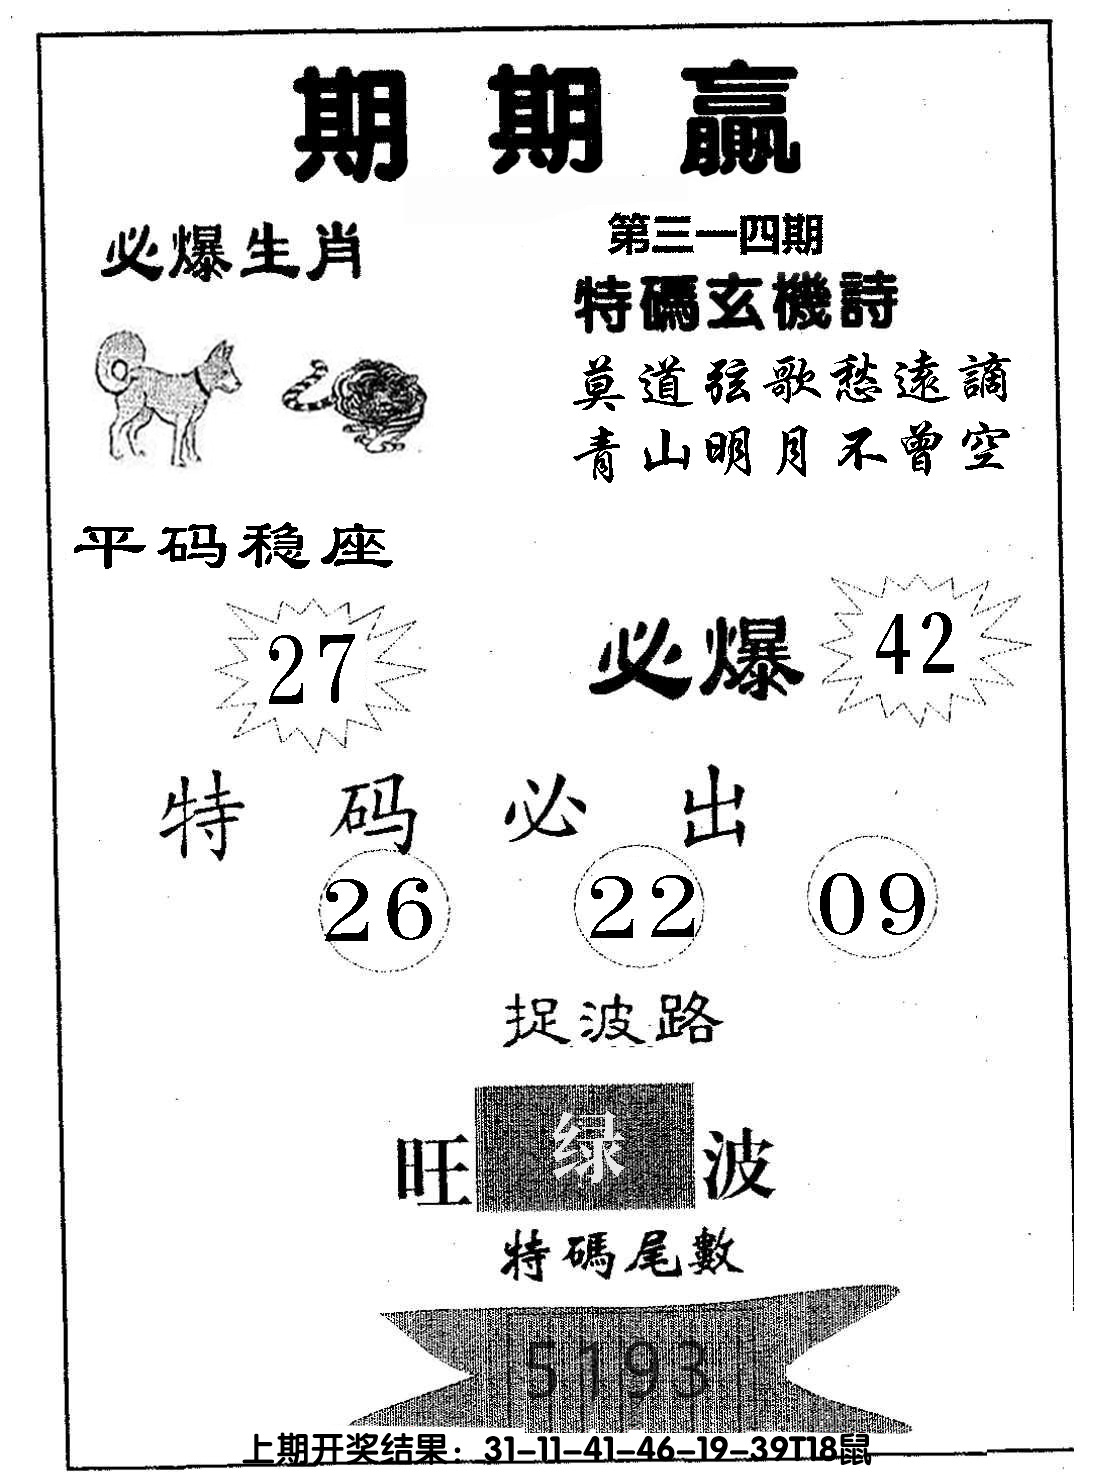 期期赢
必爆生肖
第三一四期
特碼玄機詩
莫道弦歌愁遠謫
青山明月不曾空
平码稳座
27
必爆 42
特码必出
26 22 09
捉波路
旺 绿 波
特碼尾數
5193
上期开奖结果：31-11-41-46-19-39T18鼠